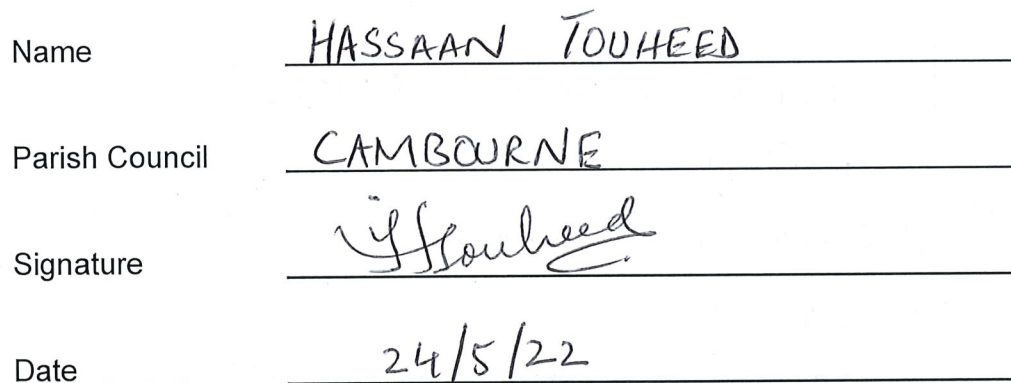 Name HASSAAN TOUHEED
Parish Council CAMBOURNE
Signature HTouheed
Date 24/5/22